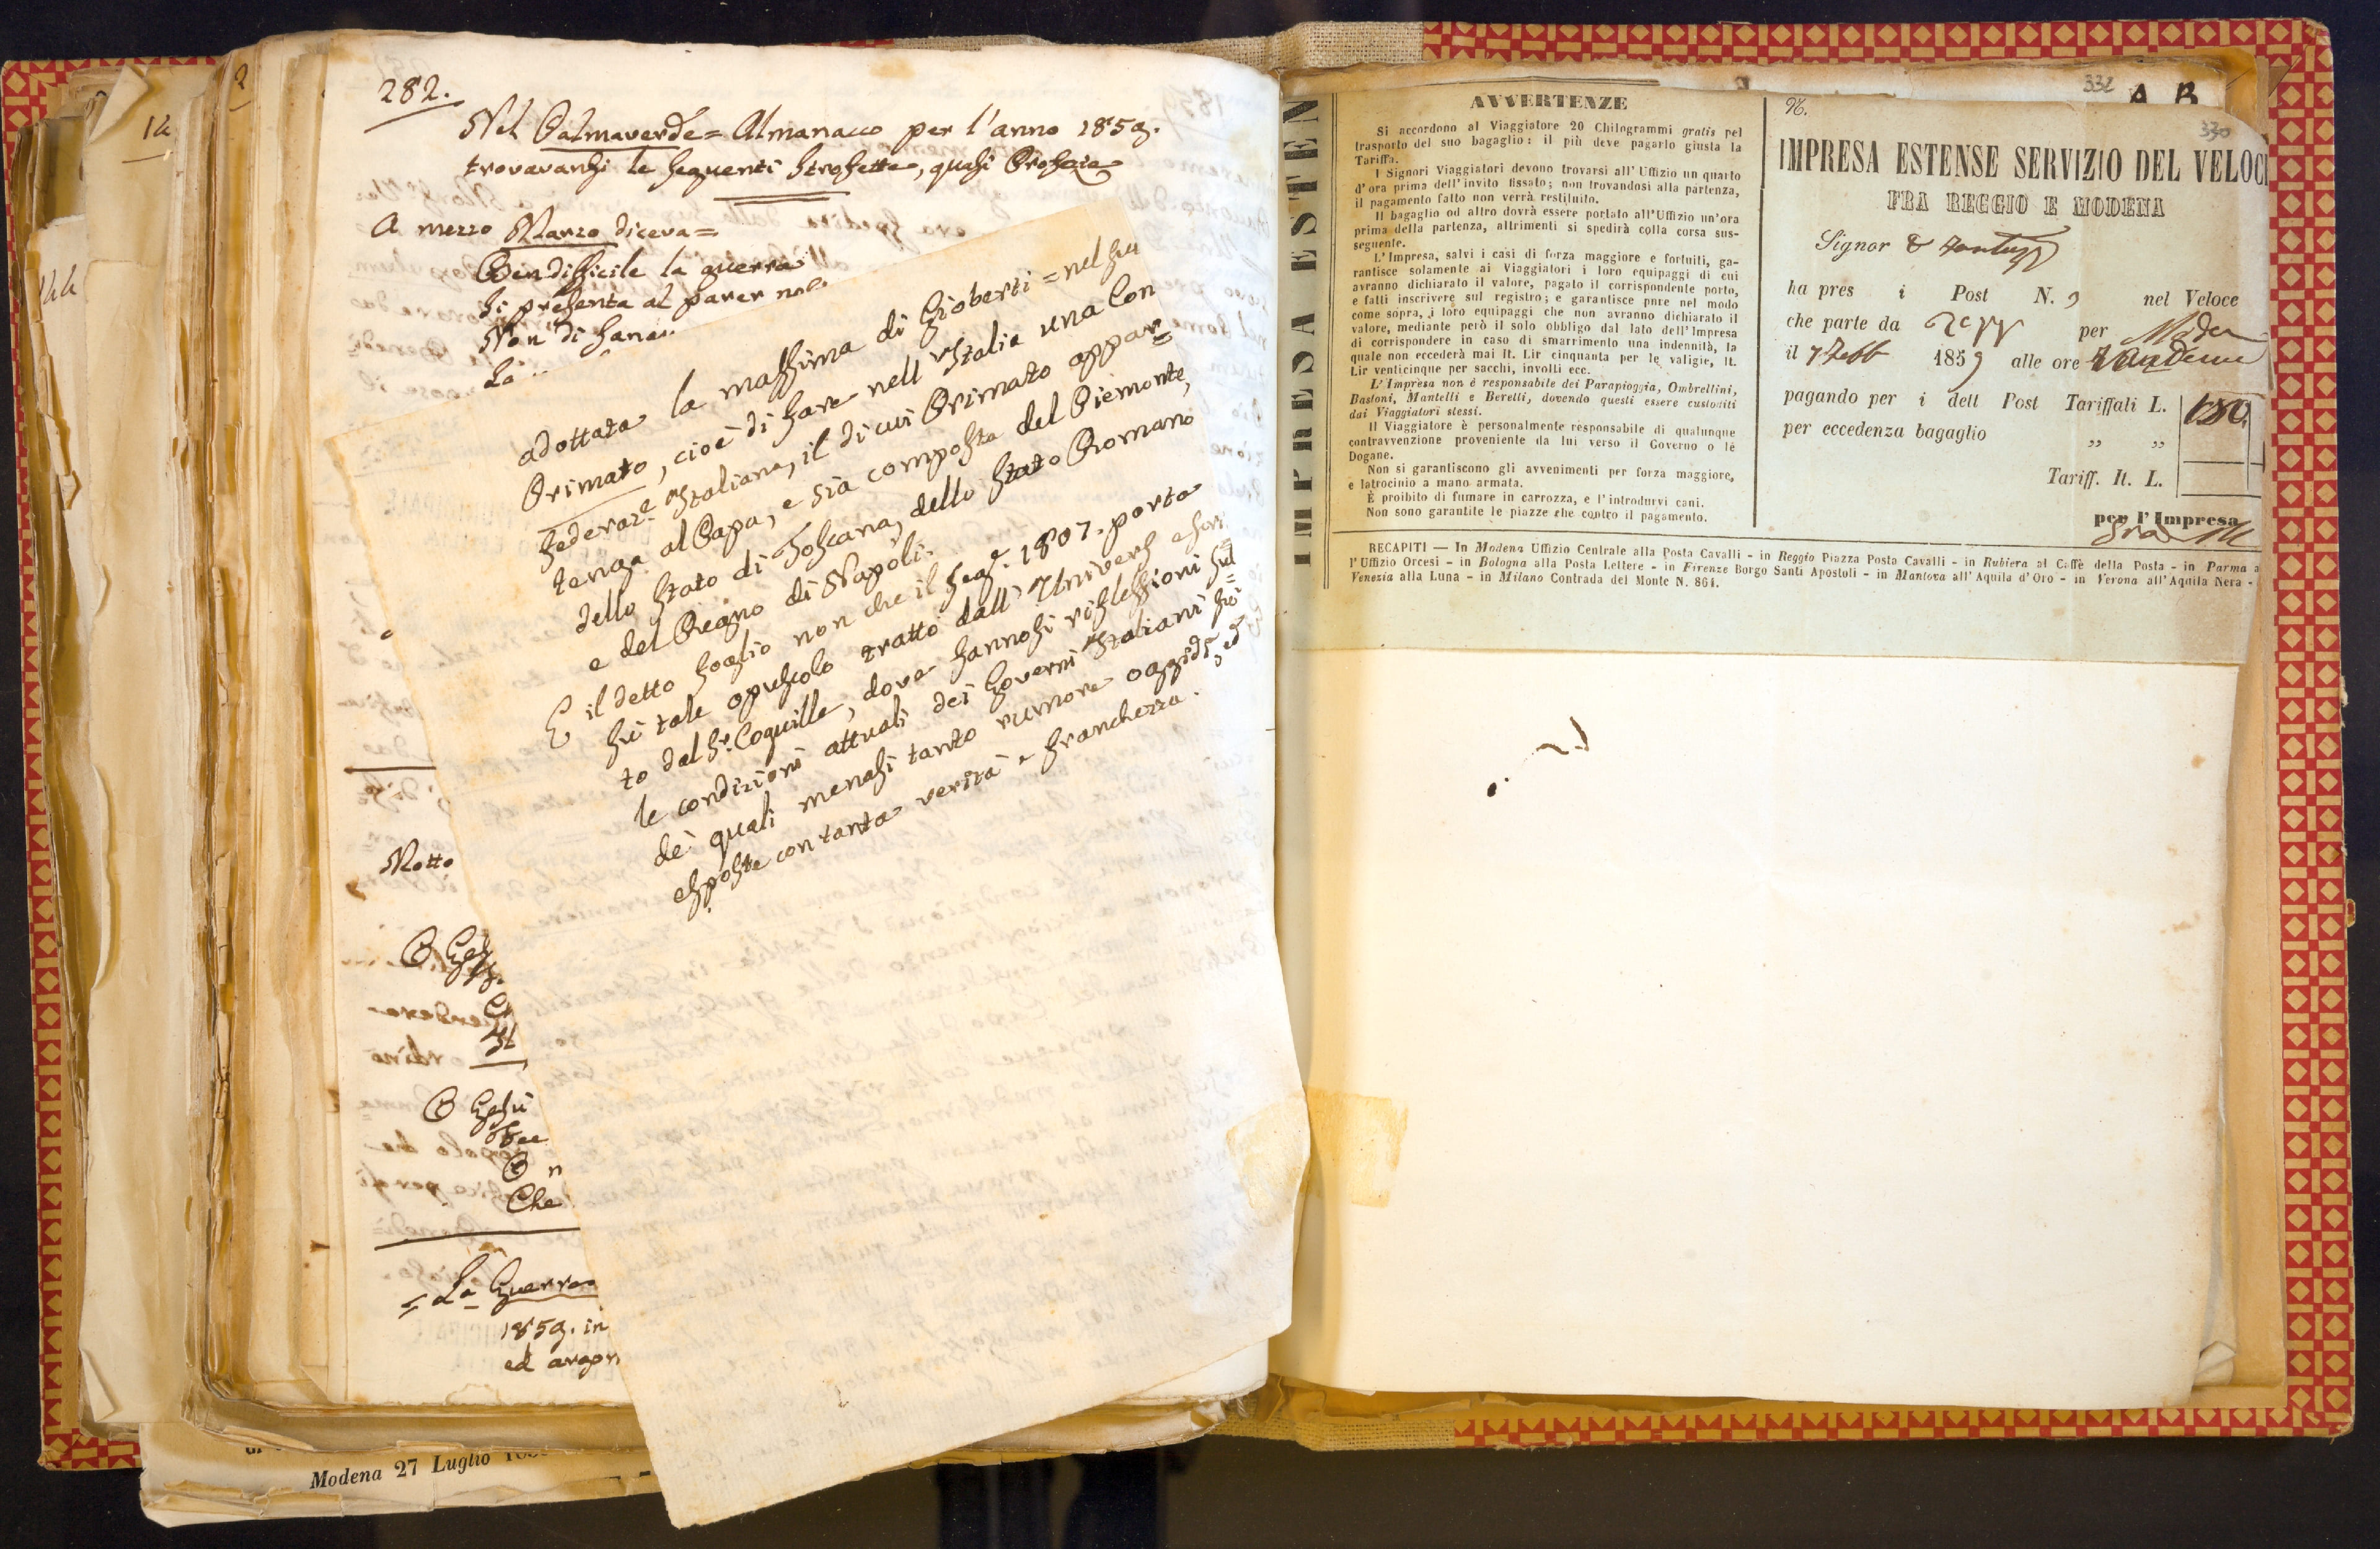 282.
Nel Palmaverde = Almanacco per l'anno 1859.
trovavansi le seguenti strofette, quasi Profezie
A mezzo Marzo diceva =
Ben difficile la guerra
Si presenta al parer nos
Non di
La
adottata la massima di Gioberti = nel suo
Primato, cioè di fare nell'Italia una Con
federaz.e Italiana, il di cui Primato appar=
tenga al Papa, e sia composta del Piemonte,
dello Stato di Toscana, dello Stato Romano
e del Regno di Napoli.
E il detto foglio non che il seg.e 1807. porta
sù tale opuscolo tratto dall'Univers e fat
to dal Sr. Coquille, dove fannosi riflessioni sul=
le condizioni attuali dei Governi Italiani sù
de' quali menasi tanto rumore oggidì, ed
esposte con tanta verità e franchezza.
Motto
O Ges
O Gesù
O n
Che
= La Guerra
1859. in
ed avapr
Modena 27 Luglio
12
IMPRESA ESTEN
AVVERTENZE
Si accordono al Viaggiatore 20 Chilogrammi gratis pel
trasporto del suo bagaglio: il più deve pagarlo giusta la
Tariffa.
I Signori Viaggiatori devono trovarsi all'Uffizio un quarto
d'ora prima dell'invito fissato; non trovandosi alla partenza,
il pagamento fatto non verrà restituito.
Il bagaglio od altro dovrà essere portato all'Uffizio un'ora
prima della partenza, altrimenti si spedirà colla corsa sus-
seguente.
L'Impresa, salvi i casi di forza maggiore e fortuiti, ga-
rantisce solamente ai Viaggiatori i loro equipaggi di cui
avranno dichiarato il valore, pagato il corrispondente porto,
e falti inscrivere sul registro; e garantisce pure nel modo
come sopra, i loro equipaggi che non avranno dichiarato il
valore, mediante però il solo obbligo dal lato dell'Impresa
di corrispondere in caso di smarrimento una indennità, la
quale non eccederà mai It. Lir cinquanta per le valigie, It.
Lir venticinque per sacchi, involti ecc.
L'Impresa non è responsabile dei Parapioggia, Ombrellini,
Bastoni, Mantelli e Beretti, dovendo questi essere custoditi
dai Viaggiatori stessi.
Il Viaggiatore è personalmente responsabile di qualunque
contravvenzione proveniente da lui verso il Governo o le
Dogane.
Non si garantiscono gli avvenimenti per forza maggiore,
e latrocinio a mano armata.
È proibito di fumare in carrozza, e l'introdurvi cani.
Non sono garantite le piazze che contro il pagamento.
332
A B
330
IMPRESA ESTENSE SERVIZIO DEL VELOCI
FRA REGGIO E MODENA
Signor
ha pres i Post N. nel Veloce
che parte da per Moden
il 7 Febb 1859 alle ore
pagando per i dett Post Tariffali L.
per eccedenza bagaglio ,, ,,
Tariff. It. L.
per l'Impresa
RECAPITI — In Modena Uffizio Centrale alla Posta Cavalli - in Reggio Piazza Posta Cavalli - in Rubiera al Caffè della Posta - in Parma a
l'Uffizio Orcesi - in Bologna alla Posta Lettere - in Firenze Borgo Santi Apostoli - in Mantova all'Aquila d'Oro - in Verona all'Aquila Nera -
Venezia alla Luna - in Milano Contrada del Monte N. 864.